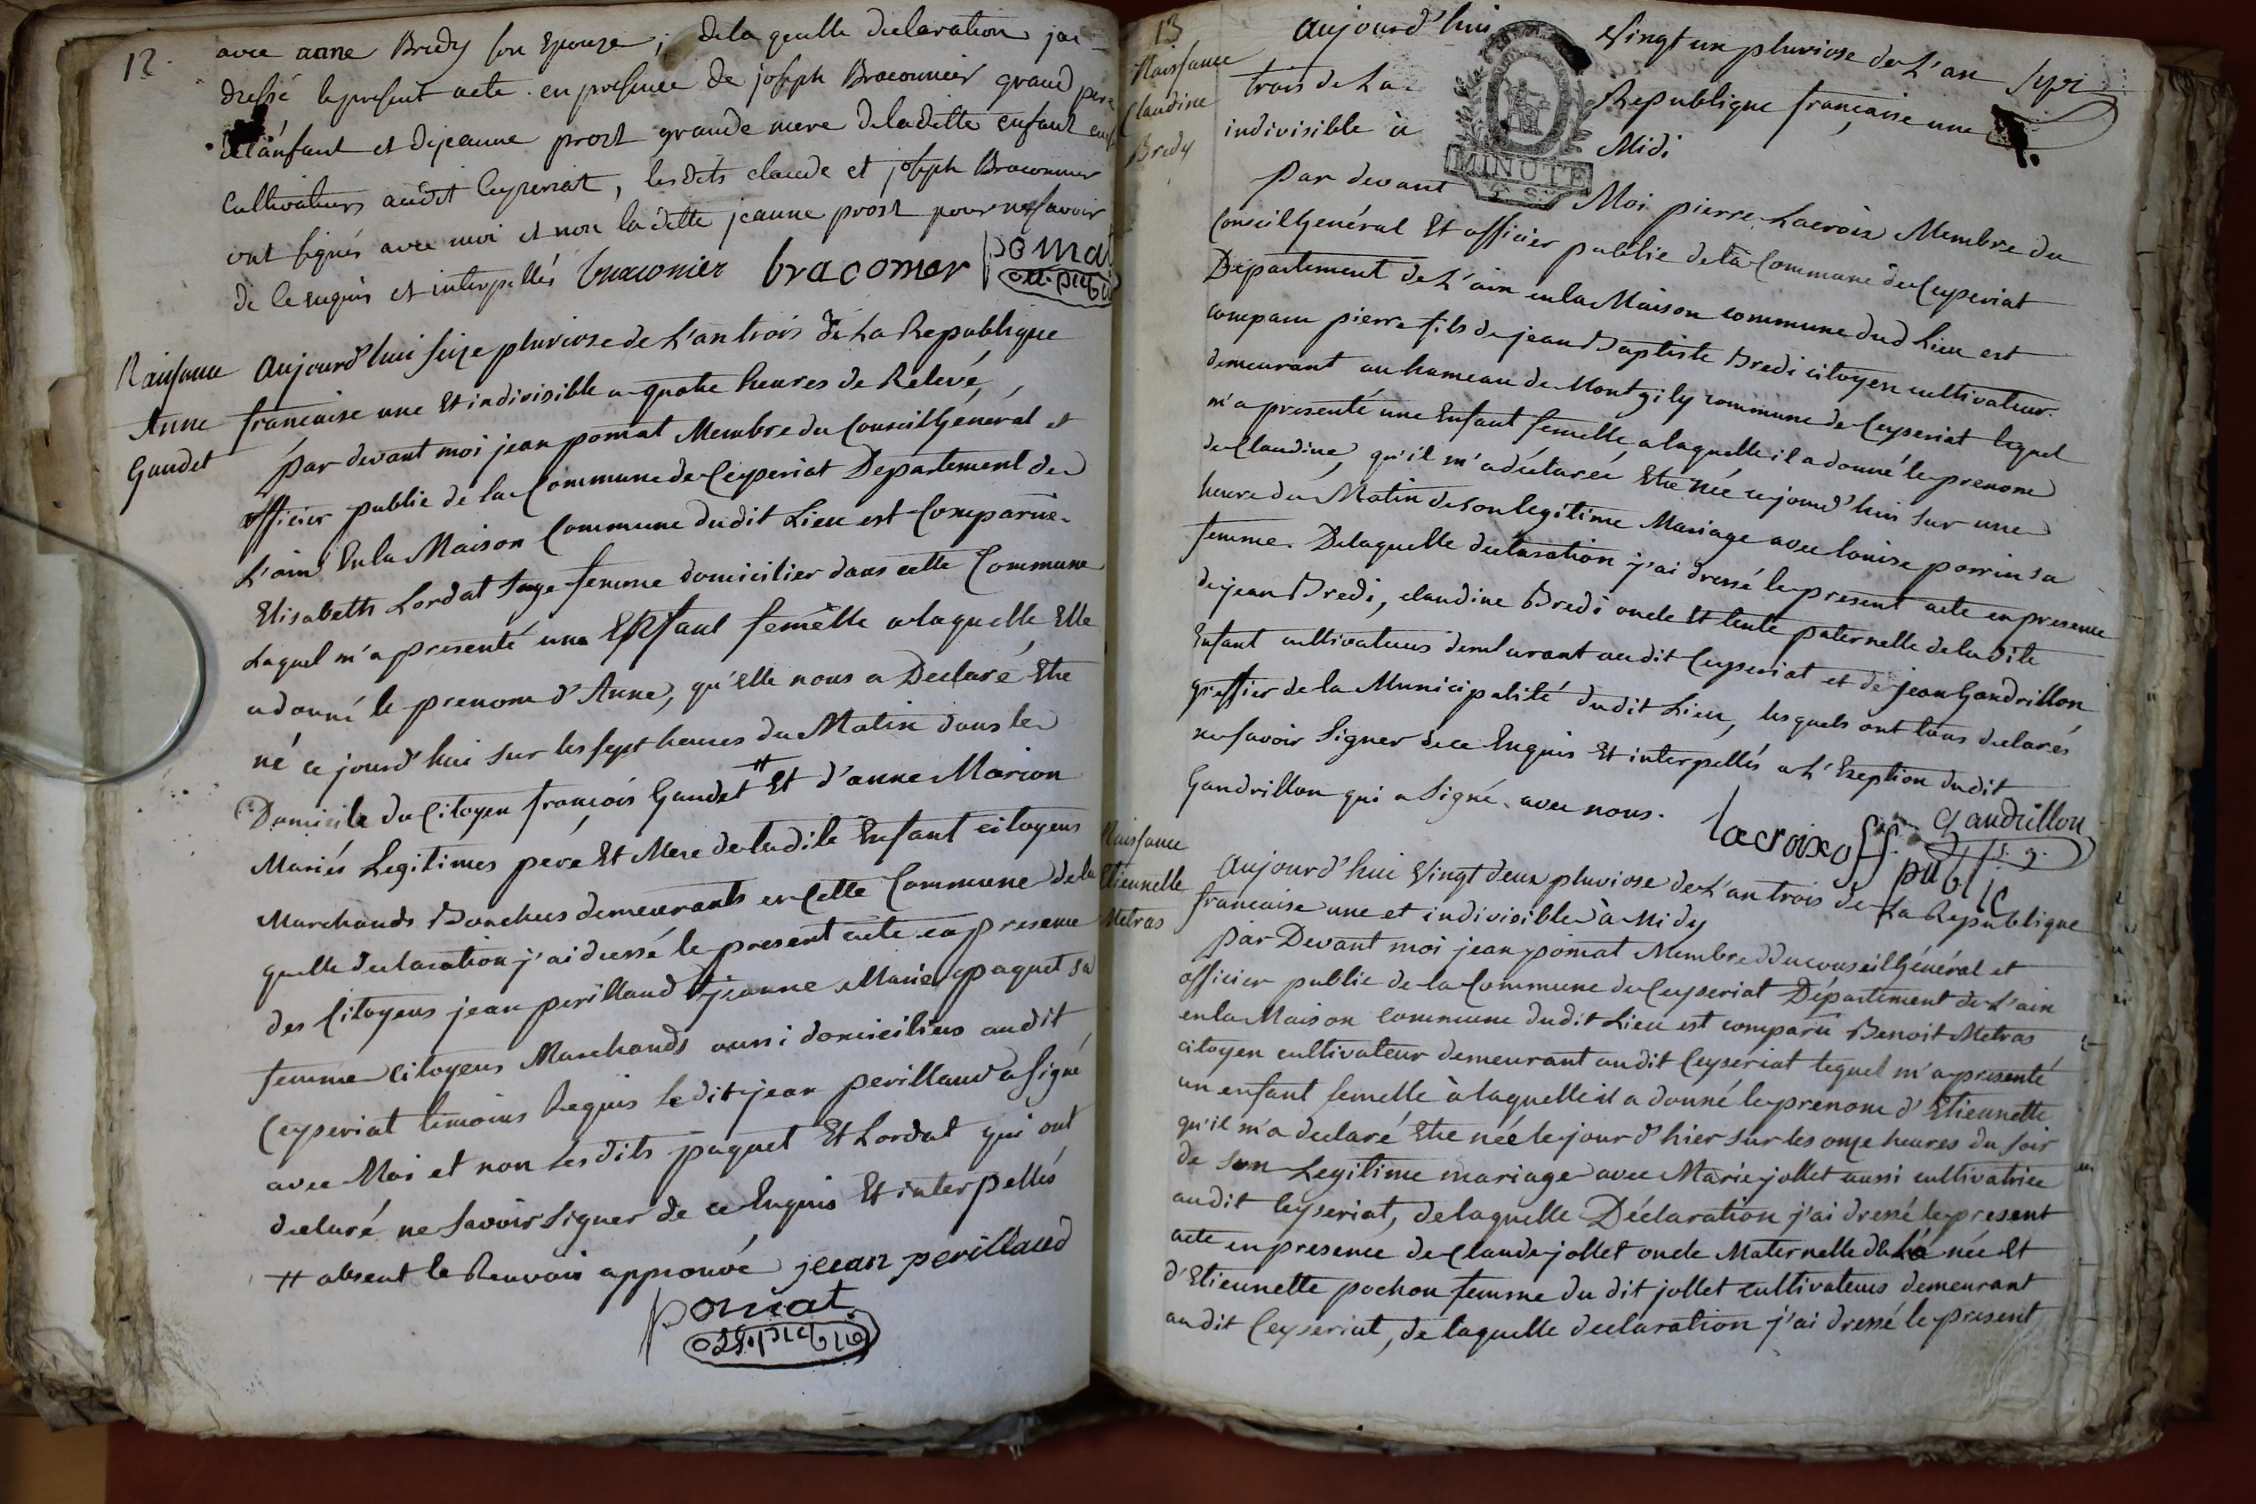 12.
avec anne Bredy son Epouze ; de la quelle declaration jai
dressé le present acte en presence de joseph Braconnier grand pere
de l'anfant et de jeanne prost grande mere de la ditte enfant
Cultivateurs audit Ceyzeriat, lesdits claude et joseph Braconnier
ont signés avec moi et non la ditte jeanne prost pour ne savoir
de ce enquis et interpellés braconier bracomer pomat
off. public
Naissance
Anne
Gaudet
Aujourd'hui seize pluviose de L'an trois de La Republique
francaise une Et indivisible a quatre heures de Relevé,
par devant moi jean pomat Membre du Conseil Général et
officier public de la Commune de Ceyseriat Département de
L'ain En la Maison Commune dudit Lieu est Comparue
Elisabeth Lordat sage femme domicilier dans cette Commune
Laquel m'a presenté une Enfant femelle a laquelle Elle
a donné le prenom d'Anne, qu'Elle nous a Declaré Etre
né ce jourd'hui sur les sept heures du Matin dans le
Domicile du Citoyen francois Gaudet # Et d'anne Marion
Mariés Legitimes pere Et Mere de ladite Enfant citoyens
Marchands Bouchers demeurants en Cette Commune de la
quelle declaration j'ai dressé le present acte en presence
des Citoyens jean perillaud Et jeanne Marie paquet sa
femme Citoyens Marchands aussi domiciliers audit
Ceyseriat temoins Requis le dit jean perillaud a signé
avec Moi et non les dits paquet Et Lordat qui ont
declaré ne savoir signer de ce Enquis Et interpellés
# absent le Renvoi approuvé jean perillaud
pomat
off. public
13
Naissance
Claudine
Bredy
aujourd'hui Vingt un pluviose de L'an
trois de La Republique française une
indivisible à Midi
MINUTE
Par devant Moi pierre Lacroix Membre du
Conseil Genéral Et officier public de la Commune de Ceyseriat
Département de L'ain en la Maison commune dud Lieu est
comparu pierre fils de jean Baptiste Bredi citoyen cultivateur
demeurant au hameau de Montgily commune de Ceyseriat lequel
m'a presenté une Enfant femelle, a laquelle il a donné le prenom
de Claudine, qu'il m'a déclareé Etre née ce jourd'hui sur une
heure du Matin de son legitime Mariage avec louise porrin sa
femme. De laquelle declaration j'ai dressé le present acte en presence
de jean Bredi, claudine Bredi oncle Et tente paternelle de la dite
Enfant cultivateurs demeurant audit Ceyseriat et de jean Gandrillon
greffier de la Municipalité dudit Lieu, lesquels ont tous declarés
ne savoir Signer de ce Enquis Et interpellés a L'Exeption dudit
Gandrillon qui a Signé avec nous.
lacroix off. public Gandrillon
s. g.
Naissance
Etiennette
Metras
aujourd'hui Vingt deux pluviose de L'an trois de La Republique
francaise une et indivisible à Midy
par Devant moi jean pomat Membre du conseil Général et
officier public de la Commune de Ceyseriat Département de L'ain
en la Maison Commune dudit Lieu est comparu Benoit Metras
citoyen cultivateur demeurant audit Ceyseriat lequel m'a presenté
un enfant femelle à laquelle il a donné le prenom d'Etiennette
qu'il m'a declaré Etre née le jour d'hier sur les onze heures du soir
de son Legitime mariage avec Marie jollet aussi cultivatrice
audit Ceyseriat, de laquelle Déclaration j'ai dressé le present
acte en presence de Claude jollet oncle Maternelle de La née Et
d'Etiennette pochon femme du dit jollet cultivateurs demeurant
audit Ceyseriat, de laquelle declaration j'ai dressé le present